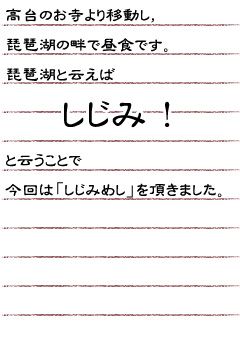 高台のお寺より移動し，
琵琶湖の畔で昼食です。
琵琶湖と云えば
しじみ！
と云うことで
今回は「しじみめし」を頂きました。